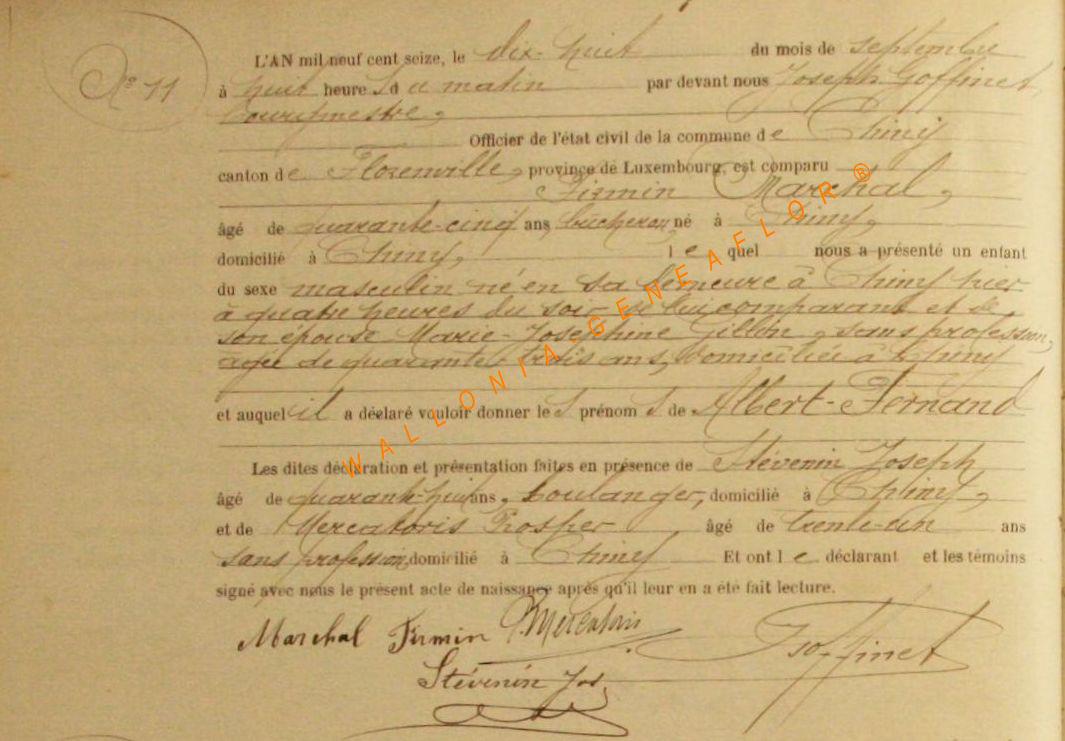 N° 11
L'AN mil neuf cent seize, le dix-huit du mois de septembre
à huit heures du matin par devant nous Joseph Goffinet,
bourgmestre,
Officier de l'état civil de la commune de Chiny
canton de Florenville, province de Luxembourg, est comparu
Firmin Marchal,
âgé de quarante-cinq ans, bûcheron, né à Chiny,
domicilié à Chiny, lequel nous a présenté un enfant
du sexe masculin né en sa demeure à Chiny hier
à quatre heures du soir de lui comparant et de
son épouse Marie-Joséphine Gillen, sans profession,
agée de quarante-trois ans, domiciliée à Chiny
et auquel il a déclaré vouloir donner les prénoms de Albert-Fernand
Les dites déclaration et présentation faites en présence de Stévenin Joseph,
âgé de quarante-huit ans, boulanger, domicilié à Chiny,
et de Mercatoris Prosper âgé de trente-un ans
sans profession, domicilié à Chiny Et ont le déclarant et les témoins
signé avec nous le présent acte de naissance après qu'il leur en a été fait lecture.
Marchal Firmin P. Mercatoris Goffinet
Stévenin Jos.
WALLONIA GENEAFLOR ®